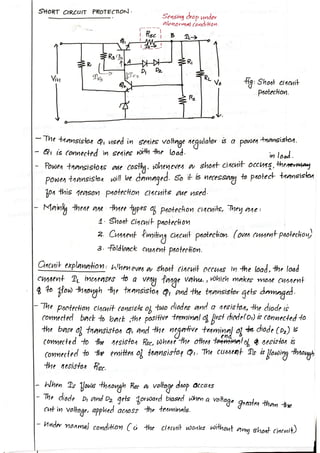 SHORT CIRCUIT PROTECTION:
Sensing drop under
abnormal condition
RSC
Q1
A
B
IL→
R3
R1
D1
D2
R1
RL
Vo
Vin
Q2
R2
fig: Short circuit
protection.
- The transistor Q1 used in series voltage regulator is a power transistor.
- Q1 is connected in series with the load.
in load.
- Power transistors are costly, whenever a short circuit occurs,
power transistor will be damaged. So it is necessary to protect transistor
for this reason protection circuits are used.
- Mainly there are three types of protection circuits, They are:
1. Short Circuit protection
2. Current limiting Circuit protection. (over current protection)
3. foldback current protection.
Circuit explanation: Whenever a short circuit occurs in the load, the load
current IL increases to a very large value, which makes more current
to flow through the transistor Q1, and the transistor gets damaged.
- The protection circuit consists of two diodes and a resistor, the diode is
connected back to back, the positive terminal of first diode (D1) is connected to
the base of transistor Q1 and the negative terminal of diode (D2) is
end
connected to the resistor Rsc, Where the other of resistor is
connected to the emitter of transistor Q1. The current IL is flowing through
the resistor Rsc.
- When IL flows through Rsc a voltage drop occurs
- The diode D1 and D2 gets forward biased when a voltage greater than the
cut in voltage, applied across the terminals.
- Under normal condition (i.e the circuit works without any short circuit)